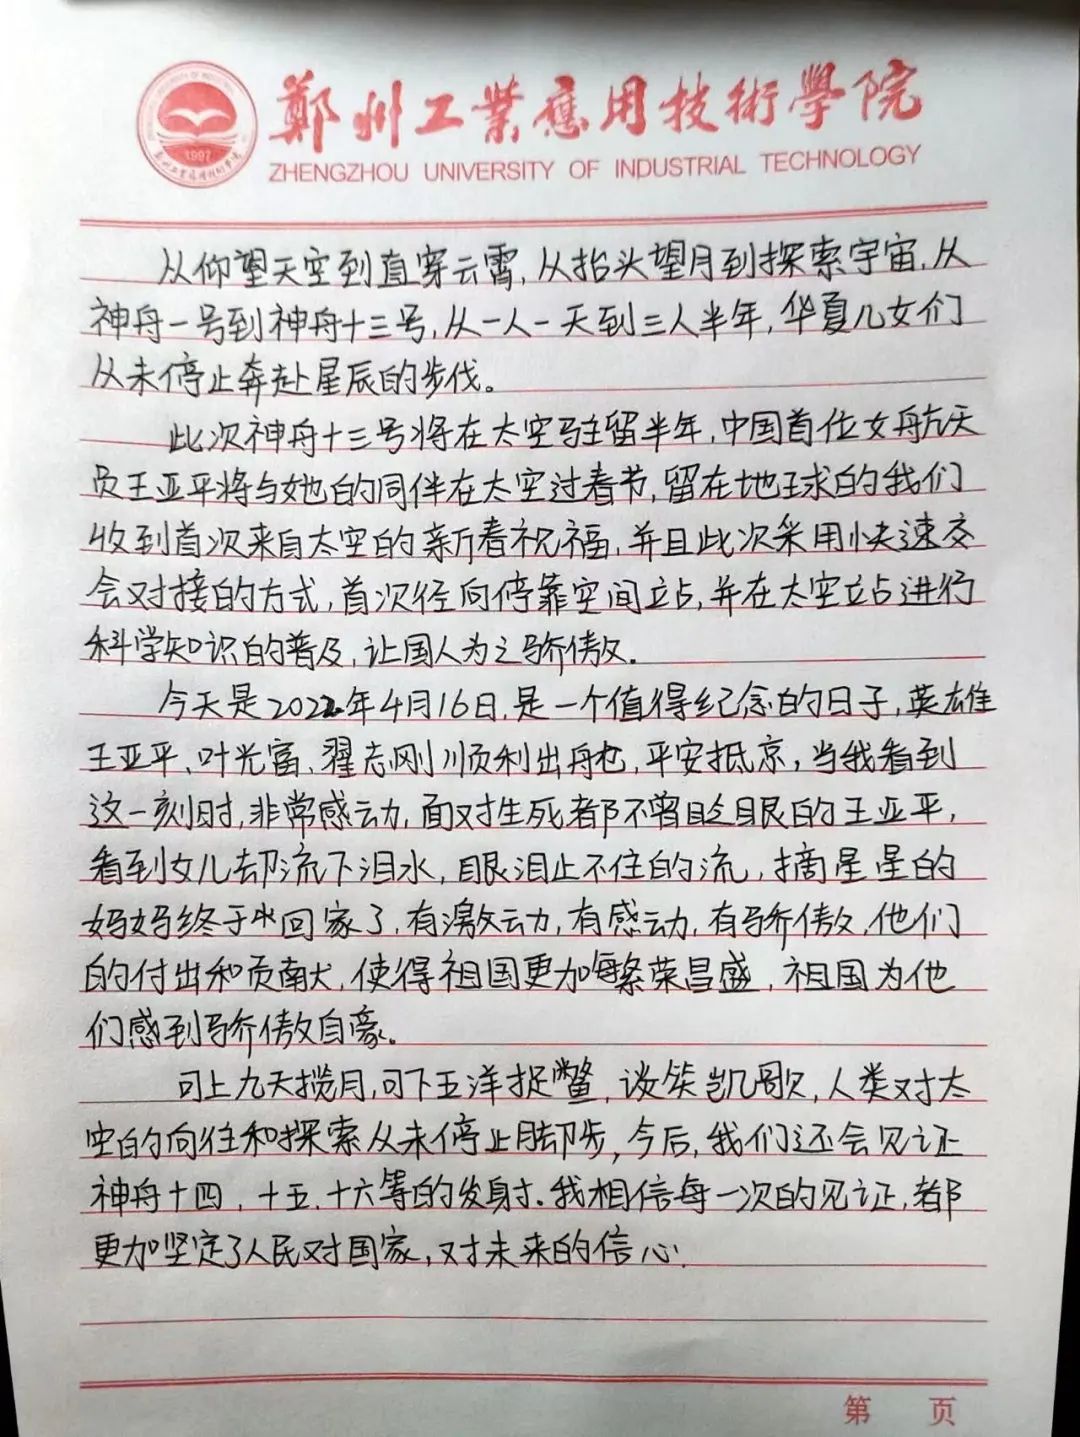 鄭州工業應用技術學院
ZHENGZHOU UNIVERSITY OF INDUSTRIAL TECHNOLOGY
1997
从仰望天空到直穿云霄,从抬头望月到探索宇宙,从
神舟一号到神舟十三号,从一人一天到三人半年,华夏儿女们
从未停止奔赴星辰的步伐。
此次神舟十三号将在太空驻留半年,中国首位女航天
员王亚平将与她的同伴在太空过春节,留在地球的我们
收到首次来自太空的新春祝福,并且此次采用快速交
会对接的方式,首次径向停靠空间站,并在太空站进行
科学知识的普及,让国人为之骄傲。
今天是2022年4月16日,是一个值得纪念的日子,英雄
王亚平、叶光富、翟志刚顺利出舱,平安抵京,当我看到
这一刻时,非常感动,面对生死都不曾眨眼的王亚平,
看到女儿却流下泪水,眼泪止不住的流,摘星星的
妈妈终于回家了,有激动,有感动,有骄傲,他们
的付出和贡献,使得祖国更加繁荣昌盛,祖国为他
们感到骄傲自豪。
可上九天揽月,可下五洋捉鳖,谈笑凯歌,人类对太
空的向往和探索从未停止脚步,今后,我们还会见证
神舟十四,十五,十六等的发射.我相信每一次的见证,都
更加坚定了人民对国家,对未来的信心!
第 页